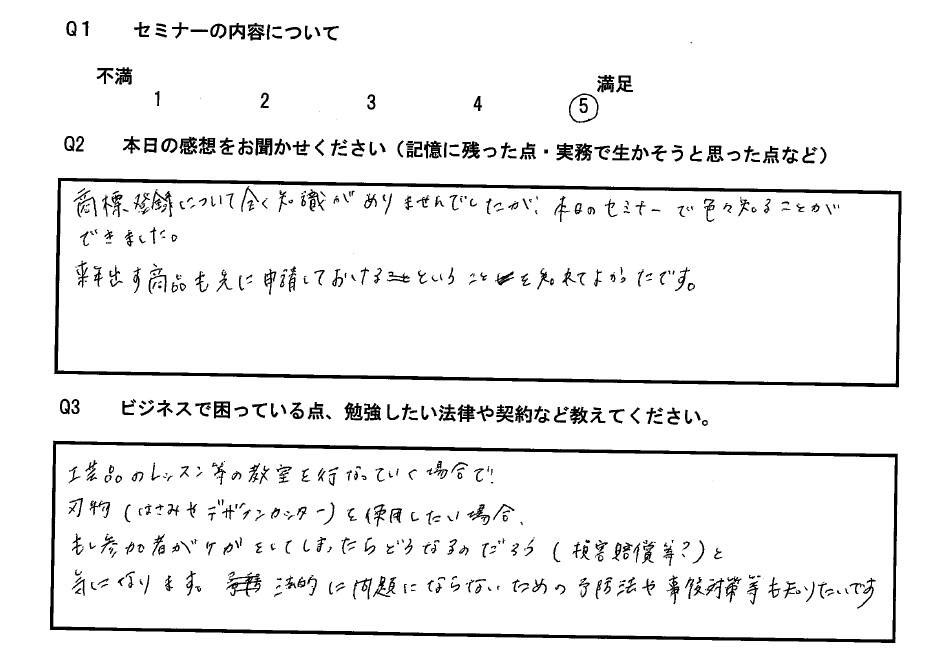 Q1 セミナーの内容について
不満 満足
1 2 3 4 5
Q2 本日の感想をお聞かせください（記憶に残った点・実務で生かそうと思った点など）
商標登録について全く知識がありませんでしたが、本日のセミナーで色々知ることが
できました。
来年出す商品も先に申請しておけるということを知れてよかったです。
Q3 ビジネスで困っている点、勉強したい法律や契約など教えてください。
工芸品のレッスン等の教室を行なっていく場合で、
刃物（はさみやデザインカッター）を使用したい場合、
もし参加者がケガをしてしまったらどうなるのだろう（損害賠償等？）と
気になります。法的に問題にならないための予防法や事後対策等も知りたいです